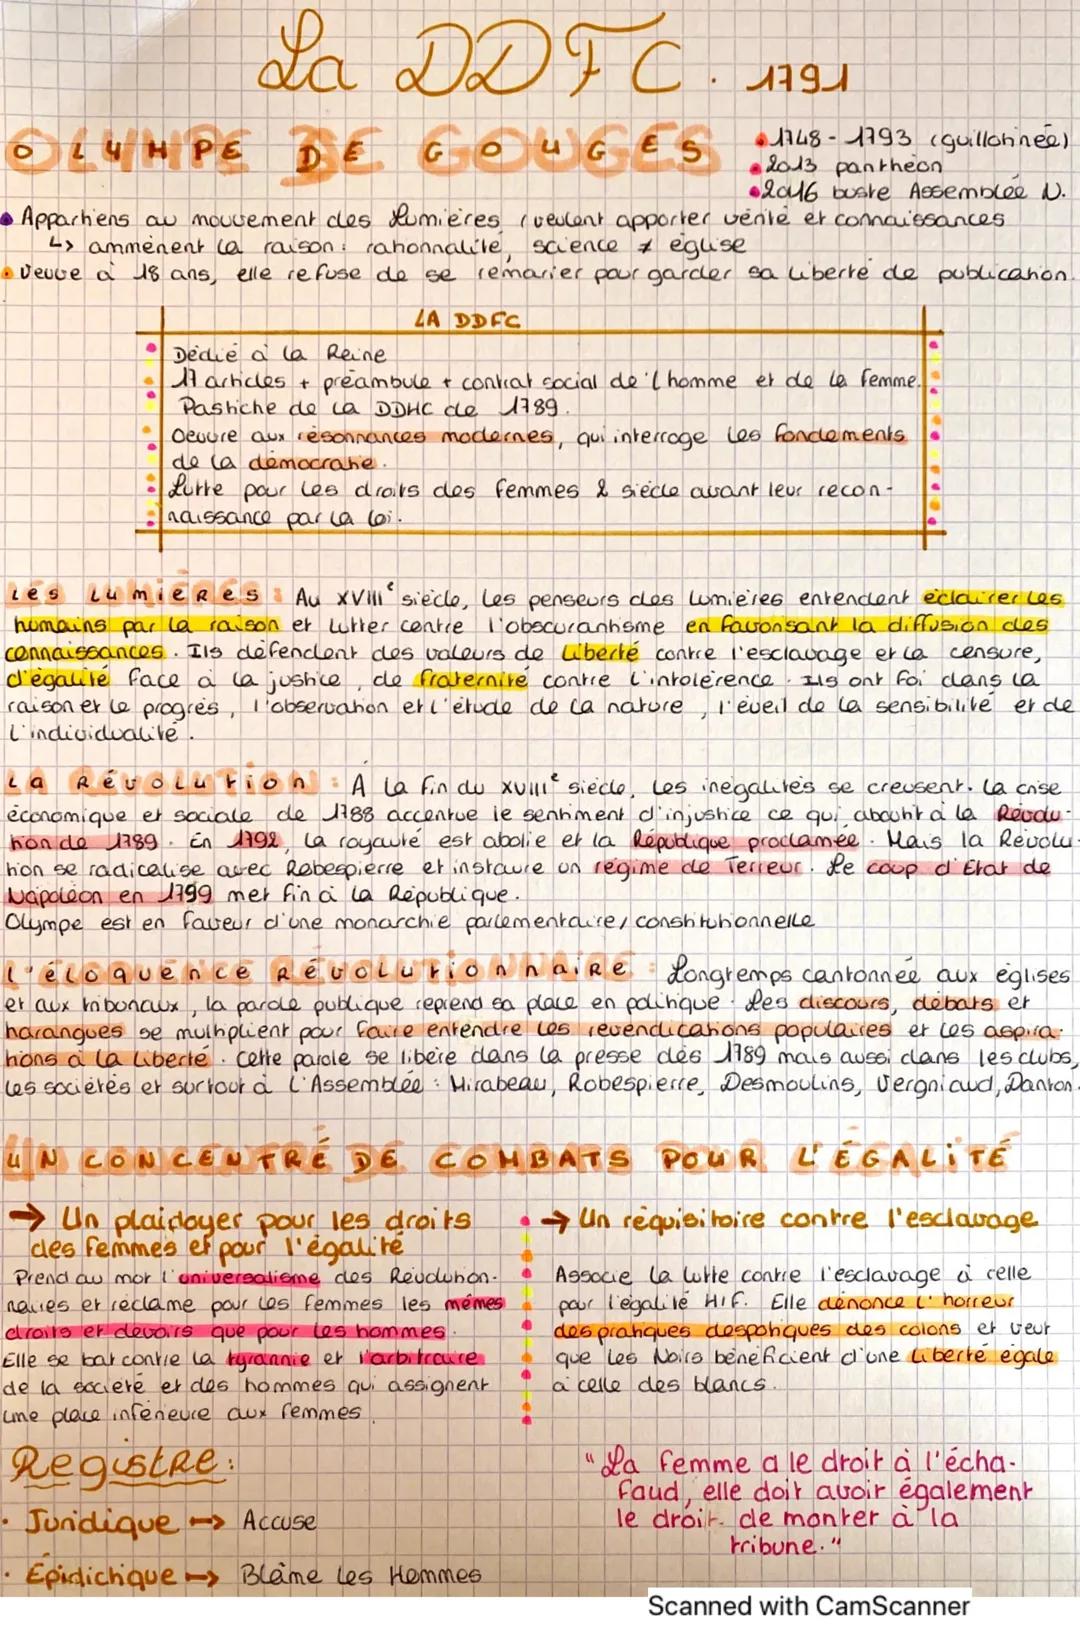 La DDFC. 1791
OLYMPE DE GOUGES
• 1748 - 1793 (guillotinée)
• 2013 panthéon
• 2016 buste Assemblée N.
• Appartiens au mouvement des Lumières (veulent apporter vérité et connaissances
↳ ammènent la raison: rationnalité, science ≠ église
• Veuve à 18 ans, elle refuse de se remarier pour garder sa liberté de publication.
LA DDFC
Dédié à la Reine
17 articles + préambule + contrat social de l'homme et de la femme.
Pastiche de la DDHC de 1789.
Oeuvre aux résonnances modernes, qui interroge les fondements
de la démocratie.
Lutte pour les droits des femmes 2 siècle avant leur recon-
naissance par la loi.
Les Lumières : Au XVIIIe siècle, les penseurs des lumières entendent éclairer les
humains par la raison et lutter contre l'obscurantisme en favorisant la diffusion des
connaissances. Ils défendent des valeurs de liberté contre l'esclavage et la censure,
d'égalité face à la justice, de fraternité contre l'intolérence. Ils ont foi dans la
raison et le progrès, l'observation et l'étude de la nature, l'éveil de la sensibilité et de
l'individualité.
La Révolution : À la fin du XVIIIe siècle, les inégalités se creusent. La crise
économique et sociale de 1788 accentue le sentiment d'injustice ce qui aboutit à la Révolu-
tion de 1789. En 1792, la royauté est abolie et la République proclamée. Mais la Révolu-
tion se radicalise avec Robespierre et instaure un régime de Terreur. Le coup d'État de
Napoléon en 1799 met fin à la République.
Olympe est en faveur d'une monarchie parlementaire/constitutionnelle
L'éloquence Révolutionnaire : Longtemps cantonnée aux églises
et aux tribunaux, la parole publique reprend sa place en politique. Les discours, débats et
harangues se multiplient pour faire entendre les revendications populaires et les aspira-
tions à la liberté. Cette parole se libère dans la presse dès 1789 mais aussi dans les clubs,
les sociétés et surtout à l'Assemblée : Mirabeau, Robespierre, Desmoulins, Vergniaud, Danton.
UN CONCENTRÉ DE COMBATS POUR L'ÉGALITÉ
→ Un plaidoyer pour les droits
des femmes et pour l'égalité
Prend au mot l'universalisme des Révolution-
naires et réclame pour les femmes les mêmes
droits et devoirs que pour les hommes.
Elle se bat contre la tyrannie et l'arbitraire
de la société et des hommes qui assignent
une place inférieure aux femmes.
→ Un réquisitoire contre l'esclavage
Associe la lutte contre l'esclavage à celle
pour l'égalité H/F. Elle dénonce l'horreur
des pratiques despotiques des colons et veut
que les Noirs bénéficient d'une liberté égale
à celle des blancs.
Registre :
• Juridique → Accuse
• Épidichique → Blâme les Hommes
"La femme a le droit à l'écha-
faud, elle doit avoir également
le droit de monter à la
tribune."
Scanned with CamScanner